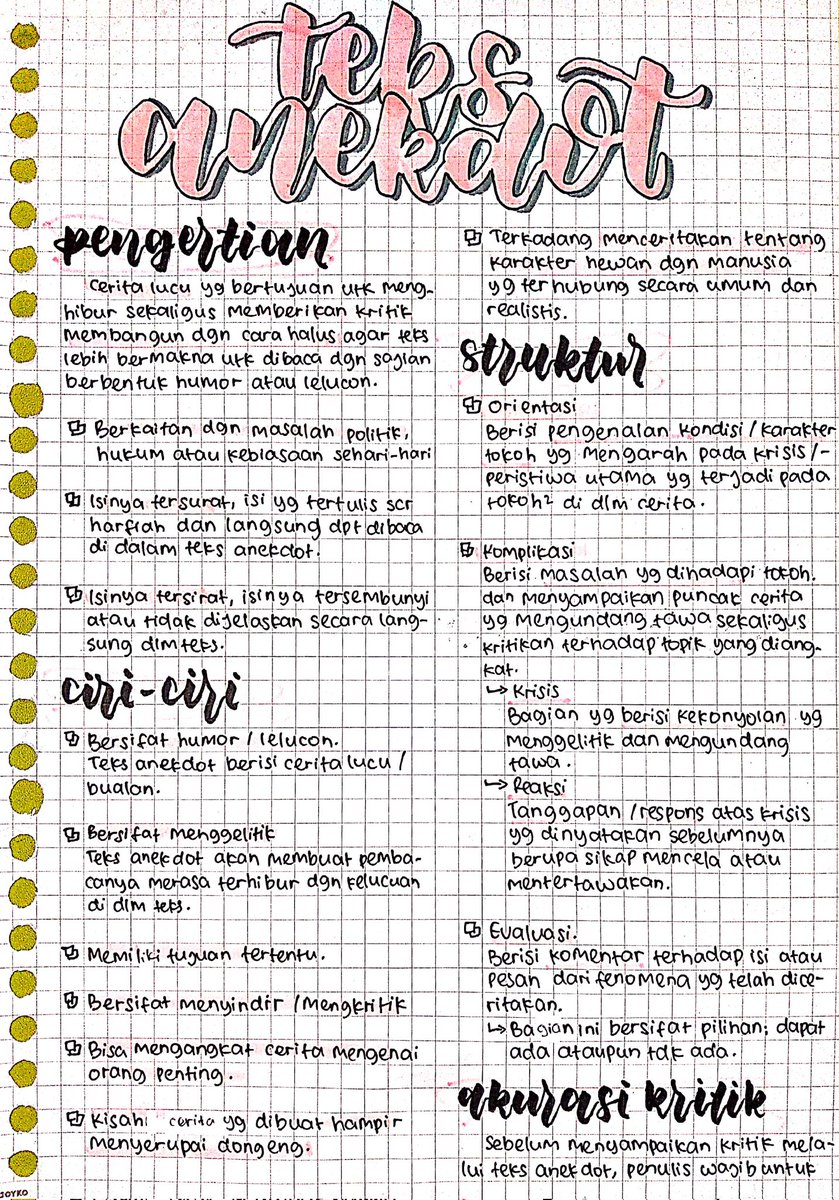 teks
anekdot
pengertian
Cerita lucu yg bertujuan utk meng-
hibur sekaligus memberikan kritik
membangun dgn cara halus agar teks
lebih bermakna utk dibaca dgn sajian
berbentuk humor atau lelucon.
Berkaitan dgn masalah politik,
hukum atau kebiasaan sehari-hari
Isinya tersurat, isi yg tertulis scr
harfiah dan langsung dpt dibaca
di dalam teks anekdot.
Isinya tersirat, isinya tersembunyi
atau tidak dijelaskan secara lang-
sung dlm teks.
ciri-ciri
Bersifat humor / lelucon.
Teks anekdot berisi cerita lucu /
bualan.
Bersifat menggelitik
Teks anekdot akan membuat pemba-
canya merasa terhibur dgn kelucuan
di dlm teks.
Memiliki tujuan tertentu.
Bersifat menyindir / Mengkritik
Bisa mengangkat cerita mengenai
orang penting.
Kisah cerita yg dibuat hampir
menyerupai dongeng.
Terkadang menceritakan tentang
karakter hewan dgn manusia
yg terhubung secara umum dan
realistis.
struktur
Orientasi
Berisi pengenalan kondisi / karakter
tokoh yg mengarah pada krisis /-
peristiwa utama yg terjadi pada
tokoh² di dlm cerita.
Komplikasi
Berisi masalah yg dihadapi tokoh.
dan menyampaikan puncak cerita
yg mengundang tawa sekaligus
kritikan terhadap topik yang diang-
kat.
↳ Krisis
Bagian yg berisi kekonyolan yg
menggelitik dan mengundang
tawa.
↳ Reaksi
Tanggapan / respons atas krisis
yg dinyatakan sebelumnya
berupa sikap mencela atau
mentertawakan.
Evaluasi.
Berisi komentar terhadap isi atau
pesan dari fenomena yg telah dice-
ritakan.
↳ Bagian ini bersifat pilihan; dapat
ada ataupun tdk ada.
akurasi kritik
Sebelum menyampaikan kritik mela-
lui teks anekdot, penulis wajib untuk
JOYKO